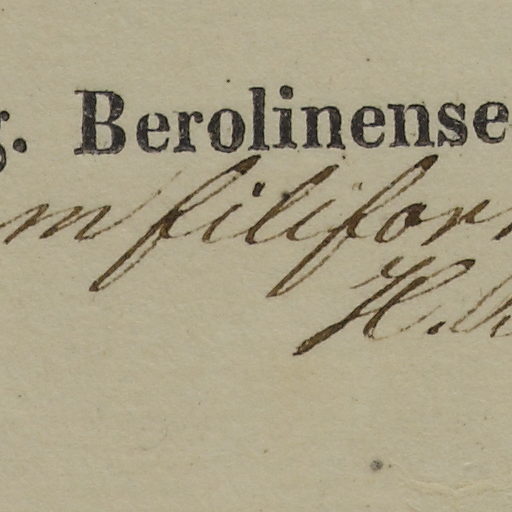 g. Berolinense
m filifor
H.